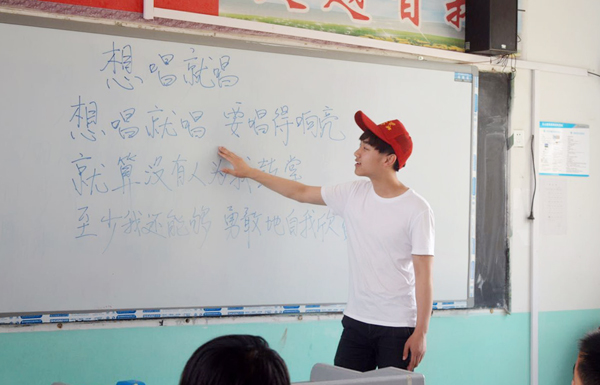 自我
想唱就唱
想唱就唱 要唱得响亮
就算没有人为我鼓掌
至少我还能够 勇敢地自我欣